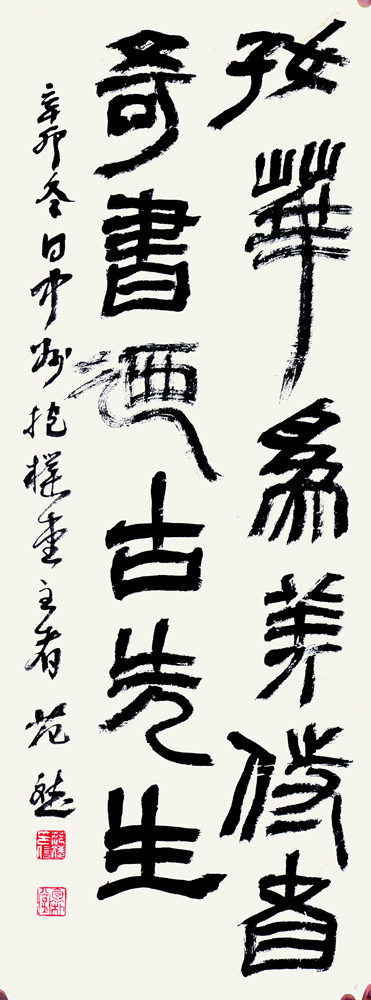 好華為美使者
奇書迺古先生
辛卯冬日中州抱樸堂主者范